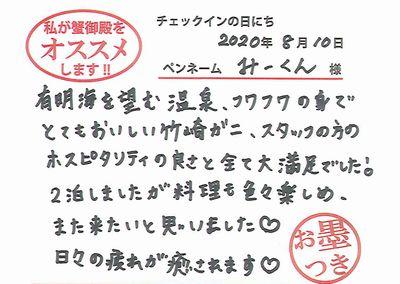 私が蟹御殿を
オススメ
します!!
チェックインの日にち
2020年8月10日
ペンネーム みーくん 様
有明海を望む温泉、フワフワの身で
とてもおいしい竹崎ガニ、スタッフの方の
ホスピタリティの良さと全て大満足でした!
2泊しましたが料理も色々楽しめ、
また来たいと思いました♡
日々の疲れが癒されます♡
お墨
つき